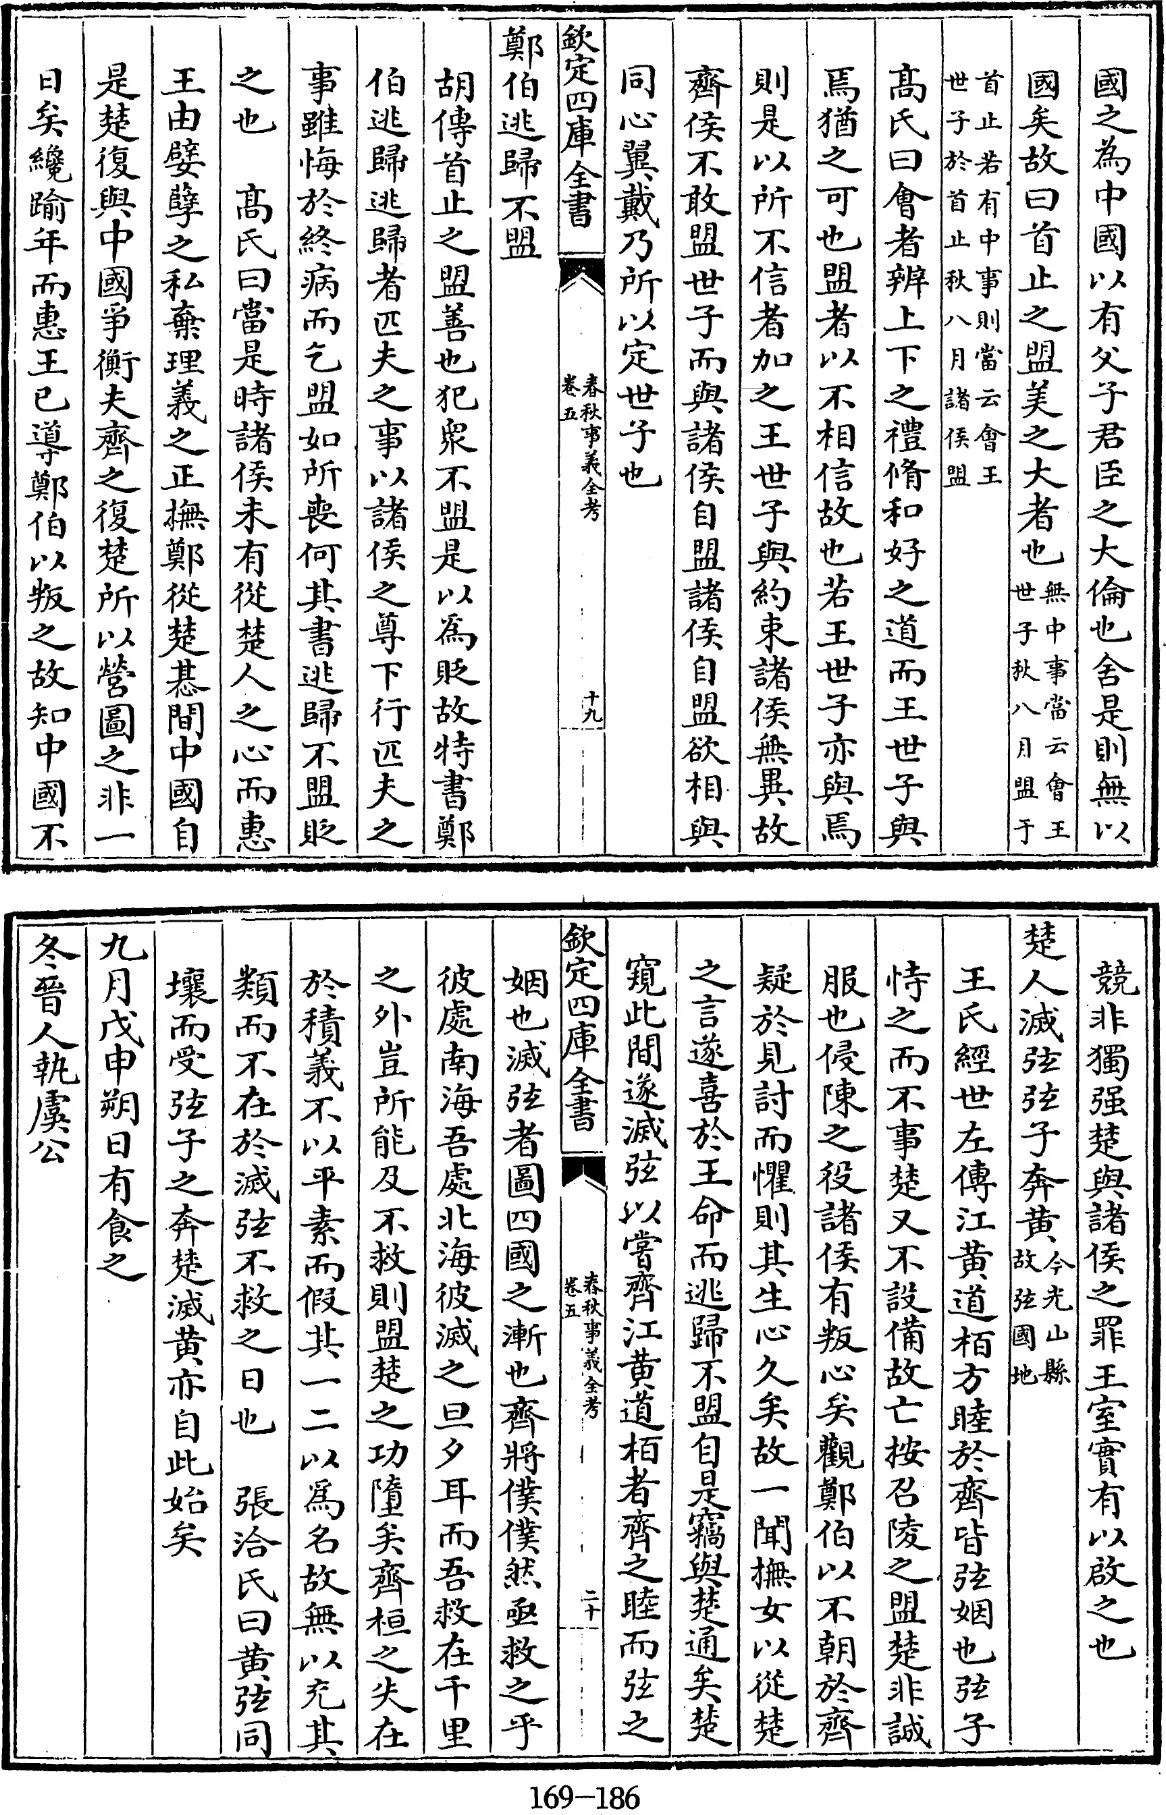 國之為中國以有父子君臣之大倫也舍是則無以
國矣故曰首止之盟美之大者也無中事當云會王
世子秋八月盟于
首止若有中事則當云會王
世子於首止秋八月諸侯盟
髙氏曰會者辨上下之禮脩和好之道而王世子與
焉猶之可也盟者以不相信故也若王世子亦與焉
則是以所不信者加之王世子與約束諸侯無異故
齊侯不敢盟世子而與諸侯自盟諸侯自盟欲相與
同心翼戴乃所以定世子也
欽定四庫全書
春秋事義全考
卷五
十九
鄭伯逃歸不盟
胡傳首止之盟善也犯衆不盟是以爲貶故特書鄭
伯逃歸逃歸者匹夫之事以諸侯之尊下行匹夫之
事雖悔於終病而乞盟如所喪何其書逃歸不盟貶
之也　髙氏曰當是時諸侯未有從楚人之心而惠
王由嬖孽之私棄理義之正撫鄭從楚惎間中國自
是楚復與中國爭衡夫齊之復楚所以營圖之非一
日矣纔踰年而惠王已導鄭伯以叛之故知中國不
競非獨强楚與諸侯之罪王室實有以啟之也
楚人滅弦弦子奔黄今光山縣
故弦國地
王氏經世左傳江黄道栢方睦於齊皆弦姻也弦子
恃之而不事楚又不設備故亡按召陵之盟楚非誠
服也侵陳之役諸侯有叛心矣觀鄭伯以不朝於齊
疑於見討而懼則其生心久矣故一聞撫女以從楚
之言遂喜於王命而逃歸不盟自是竊與楚通矣楚
窺此間遂滅弦以嘗齊江黄道栢者齊之睦而弦之
欽定四庫全書
春秋事義全考
卷五
二十
姻也滅弦者圖四國之漸也齊將僕僕然亟救之乎
彼處南海吾處北海彼滅之旦夕耳而吾救在千里
之外豈所能及不救則盟楚之功墮矣齊桓之失在
於積義不以平素而假其一二以爲名故無以充其
類而不在於滅弦不救之日也　張洽氏曰黄弦同
壤而受弦子之奔楚滅黄亦自此始矣
九月戊申朔日有食之
冬晉人執虞公
169-186